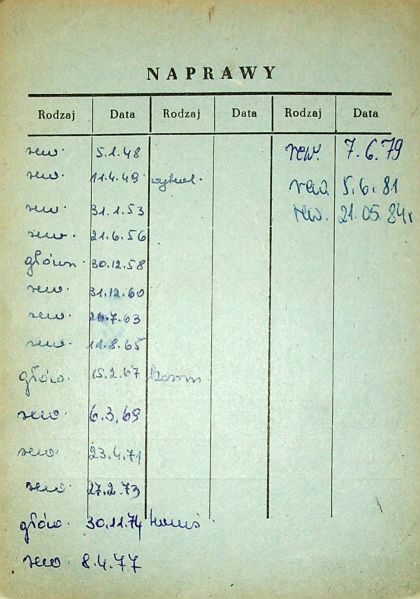 NAPRAWY
Rodzaj Data Rodzaj Data Rodzaj Data
rew. 5.1.48 rew. 7.6.79
rew. 11.4.49 rew. 5.6.81
rew. 31.1.53 rew. 21.05.84r
rew. 21.6.56
główn. 30.12.58
rew. 31.12.60
rew. 26.7.63
rew. 11.8.65
główn. 15.2.67
rew. 6.3.69
rew. 23.4.71
rew. 27.2.73
główn. 30.11.74
rew 8.4.77